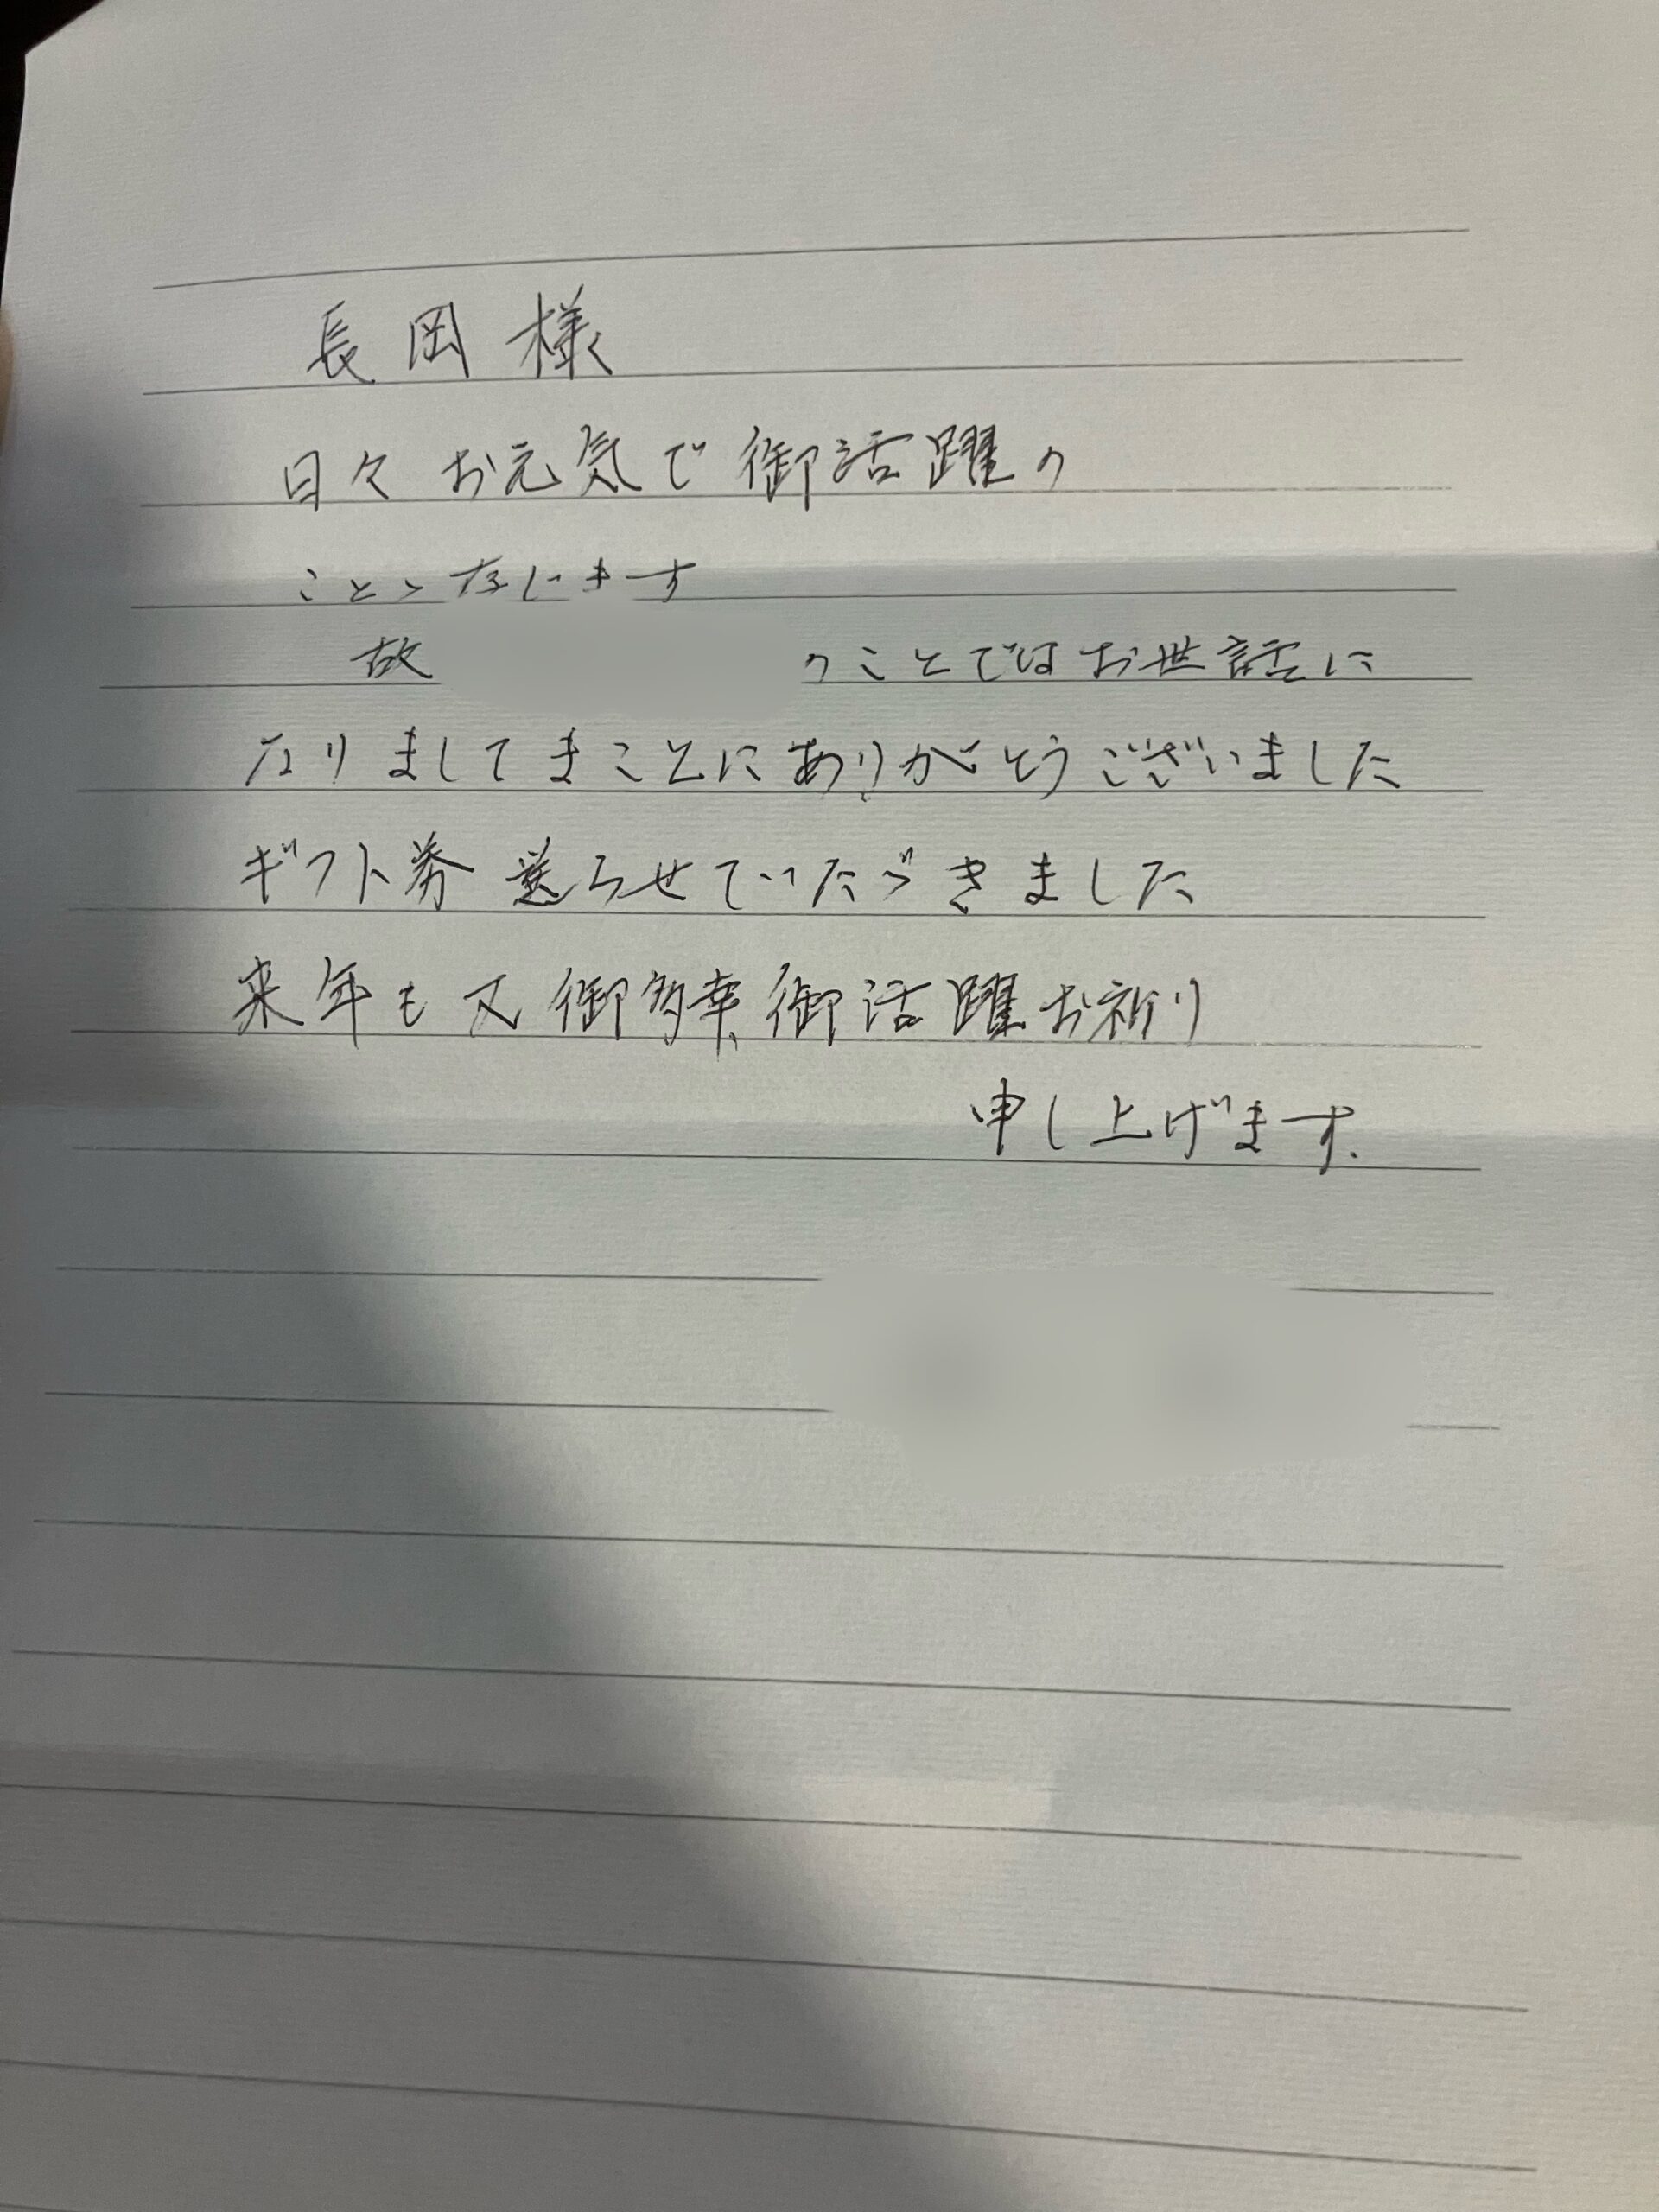 長岡様
日々お元気で御活躍の
ことゝ存じます
故 のことではお世話に
なりましてまことにありがとうございました
ギフト券送らせていたゞきました
来年も又御多幸御活躍お祈り
申し上げます.